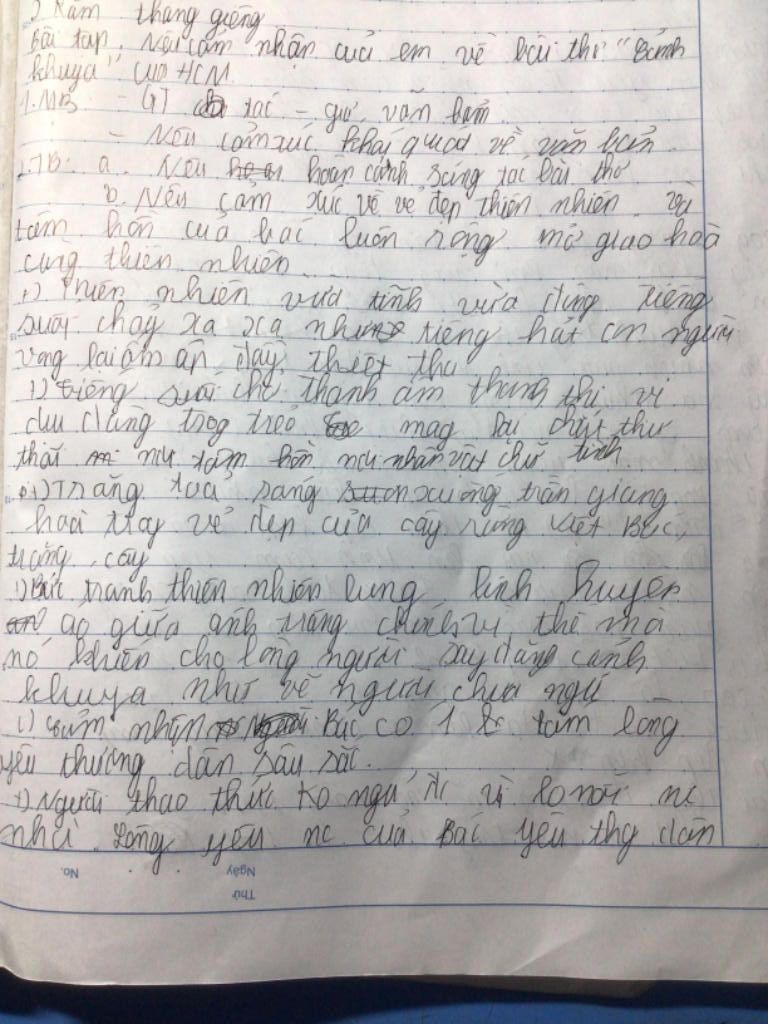 ) Rằm tháng giêng
Bài tập. Nêu cảm nhận của em về bài thơ "Cảnh
khuya" của HCM.
1. MB - GT tác - giả, văn bản
- Nêu cảm xúc khái quát về văn bản.
2. TB: a. Nêu hoàn cảnh sáng tác bài thơ
b. Nêu cảm xúc về vẻ đẹp thiên nhiên và
tâm hồn của bác luôn rộng mở giao hoà
cùng thiên nhiên.
+) Thiên nhiên vừa tĩnh vừa động tiếng
suối chảy xa xa như tiếng hát con người
vọng lại ấm áp, đầy thiết tha
+) Tiếng suối chở thành âm thanh thi vị
dịu dàng trog trẻo mag lại chút thư
thái nơi tâm hồn nơi nhân vật chữ tình.
+) Trăng toả sáng xuống trần giang
hoà vẻ đẹp của cây rừng Việt Bắc,
trăng, cây
+) Bức tranh thiên nhiên lung linh huyền
ảo giữa ánh trăng chính vì thế mà
nó khiến cho lòng người say đắng cảnh
khuya như vẽ người chưa ngủ
c) Cảm nhận Bác có 1 tấm lòng
yêu thương dân sâu sắc.
+) Người thao thức ko ngủ đc vì lo nỗi nc
nhà. Lòng yêu nc của Bác yêu thg dân
No.
Ngày
Thứ